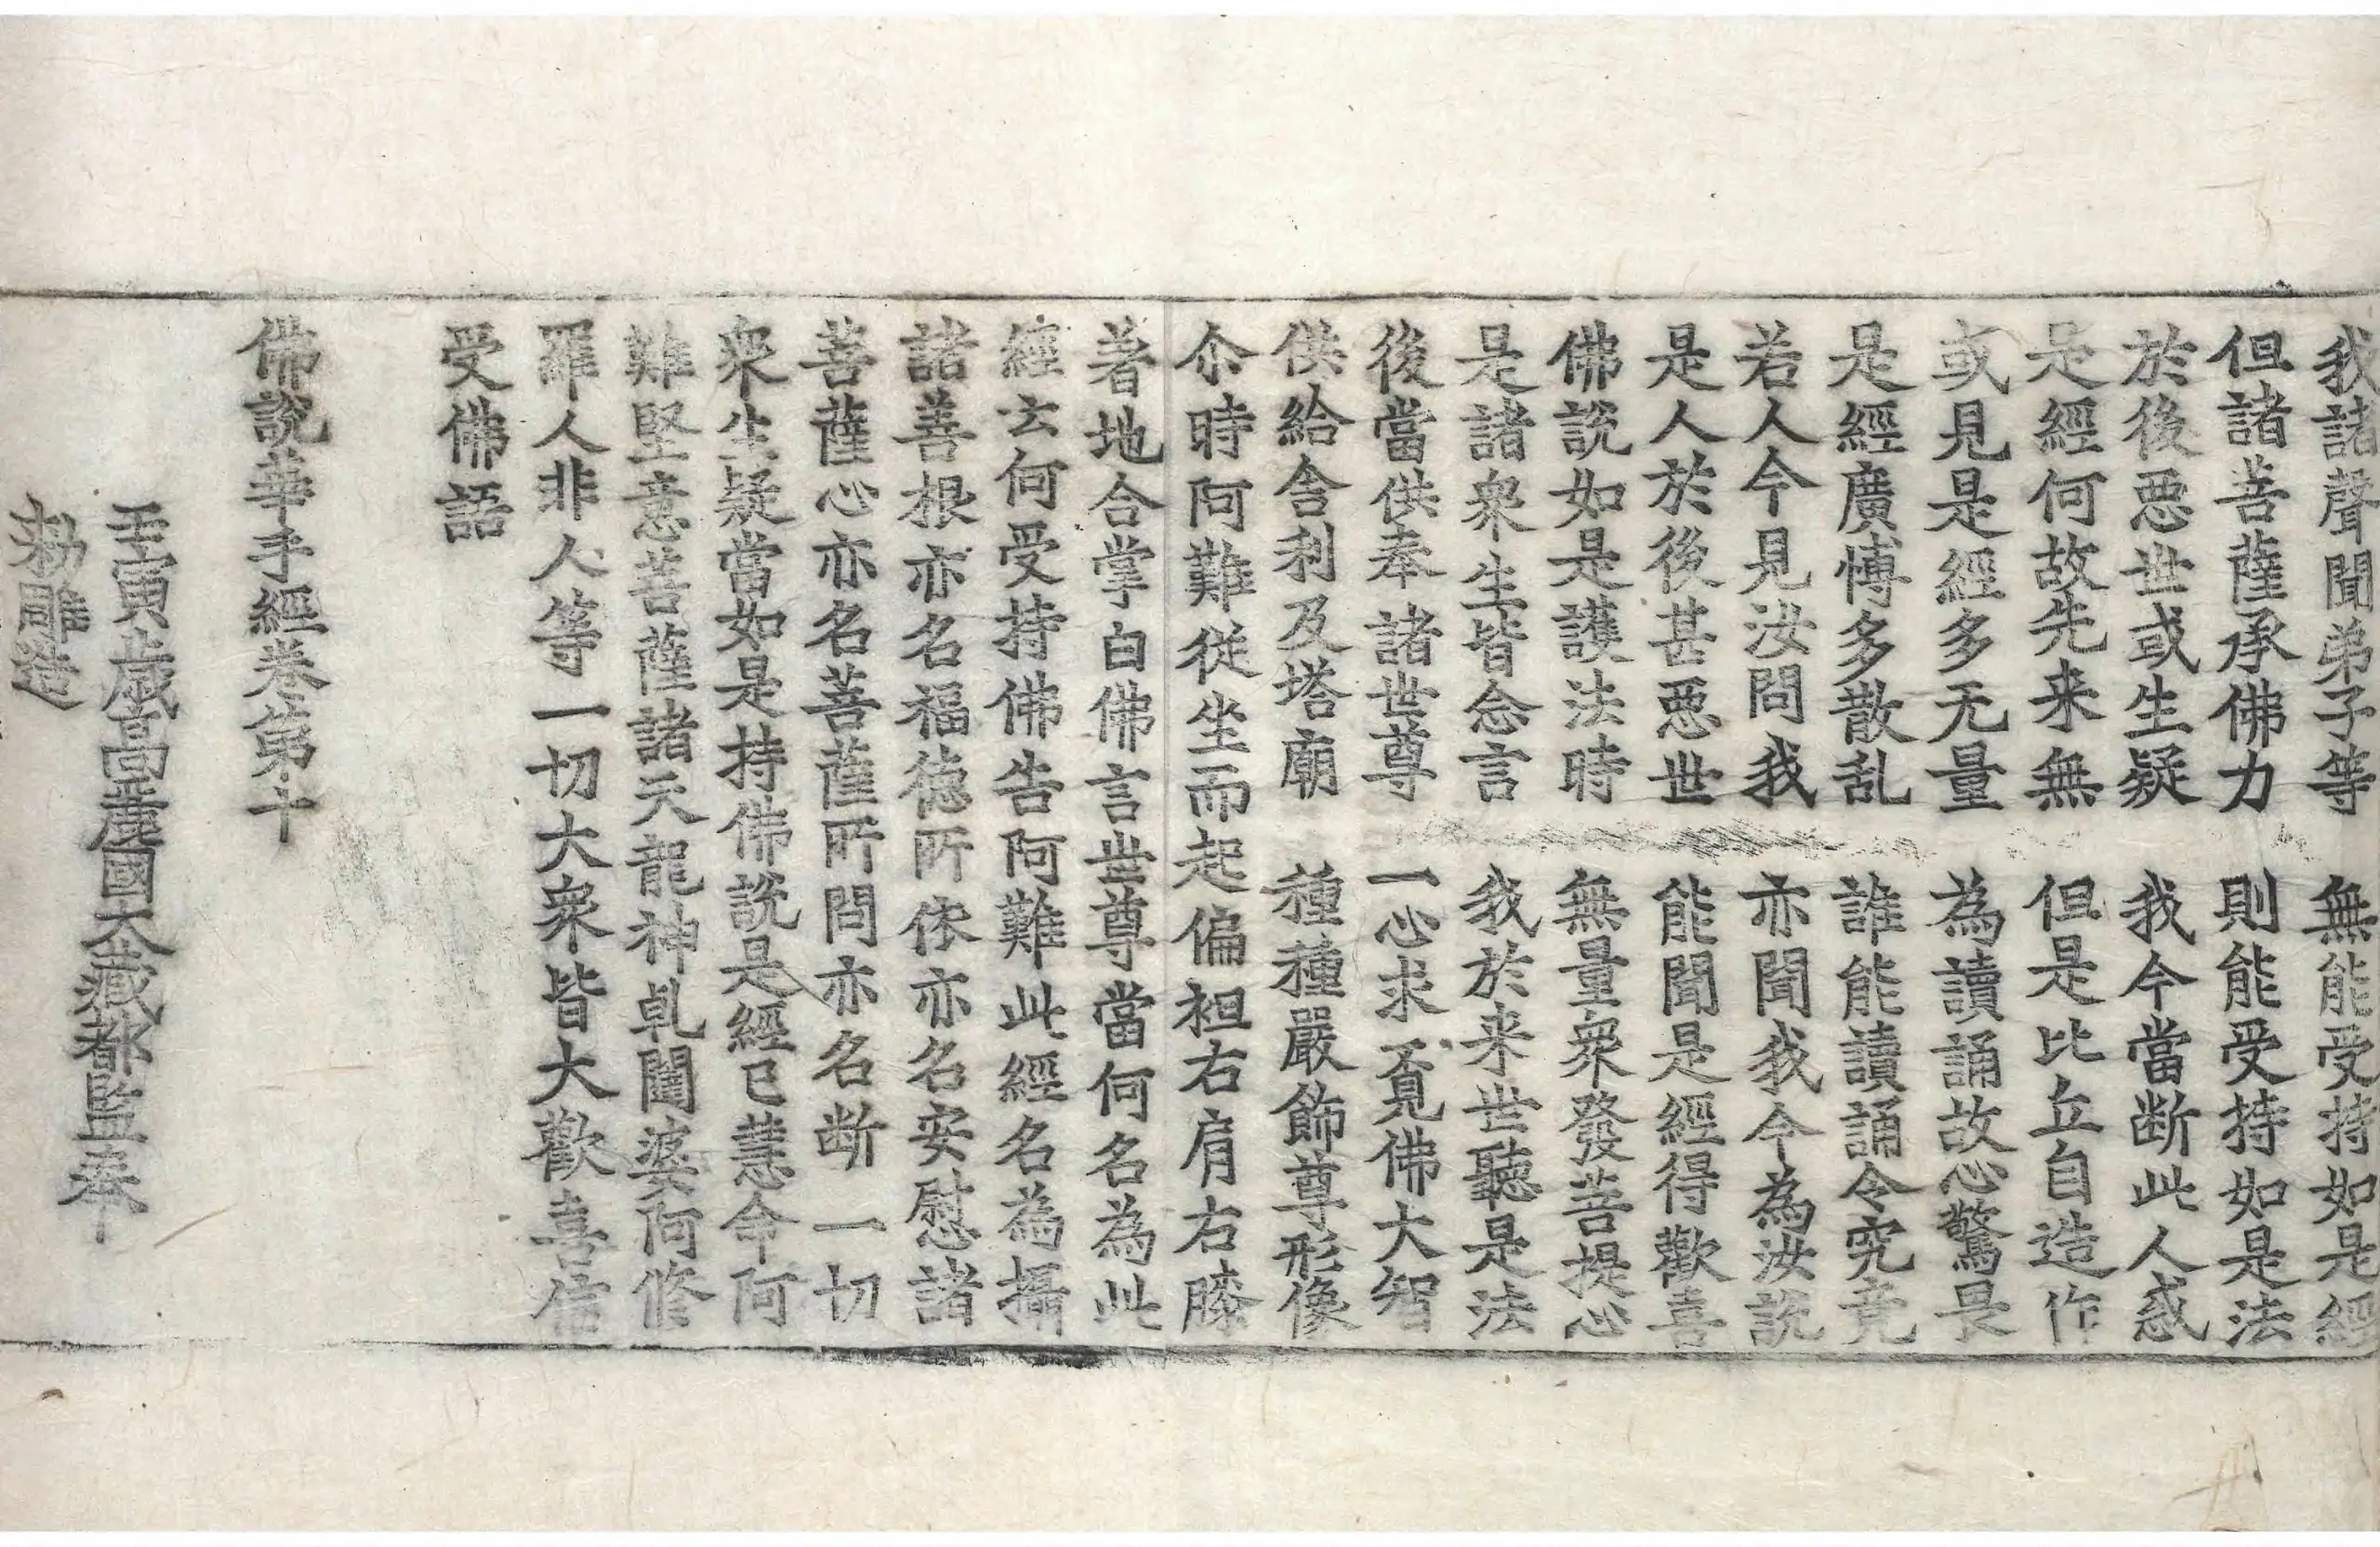 我諸聲聞弟子等　無能受持如是經
但諸菩薩承佛力　則能受持如是法
於後惡世或生疑　我今當断此人惑
是經何故先来無　但是比丘自造作
或見是經多无量　為讀誦故心驚畏
是經廣博多散乱　誰能讀誦令究竟
若人今見汝問我　亦聞我今為汝說
是人於後甚惡世　能聞是經得歡喜
佛說如是護法時　無量衆發菩提心
是諸衆生皆念言　我於来世聽是法
後當供奉諸世尊　一心求覔佛大智
供給舎利及塔廟　種種嚴飾尊形像
尒時阿難從坐而起偏袒右肩右膝
著地合掌白佛言世尊當何名為此
經云何受持佛告阿難此經名為攝
諸善根亦名福德所依亦名安慰諸
菩薩心亦名菩薩所問亦名断一切
衆生疑當如是持佛說是經已慧命阿
難堅意菩薩諸天龍神乹闥婆阿修
羅人非人等一切大衆皆大歡喜信
受佛語
佛說華手經卷第十
壬寅歲高麗國大藏都監奉
勑雕造